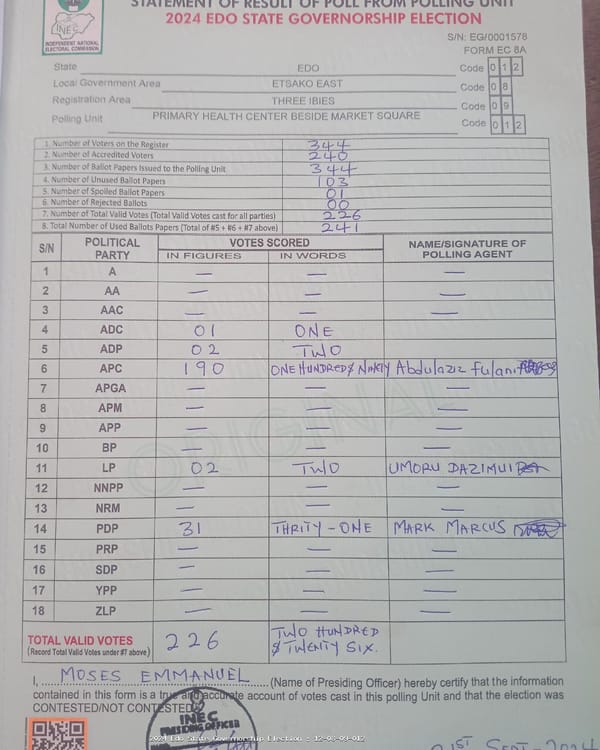 STATEMENT OF RESULT OF POLL FROM POLLING UNIT
2024 EDO STATE GOVERNORSHIP ELECTION
INEC
INDEPENDENT NATIONAL
ELECTORAL COMMISSION
S/N: EG/0001578
FORM EC 8A
State EDO Code 0 1 2
Local Government Area ETSAKO EAST Code 0 8
Registration Area THREE IBIES Code 0 9
Polling Unit PRIMARY HEALTH CENTER BESIDE MARKET SQUARE Code 0 1 2
1. Number of Voters on the Register 344
2. Number of Accredited Voters 240
3. Number of Ballot Papers Issued to the Polling Unit 344
4. Number of Unused Ballot Papers 103
5. Number of Spoiled Ballot Papers 01
6. Number of Rejected Ballots 00
7. Number of Total Valid Votes (Total Valid Votes cast for all parties) 226
8. Total Number of Used Ballots Papers (Total of #5 + #6 + #7 above) 241
S/N POLITICAL PARTY VOTES SCORED NAME/SIGNATURE OF POLLING AGENT
IN FIGURES IN WORDS
1 A — — —
2 AA — — —
3 AAC — — —
4 ADC 01 ONE
5 ADP 02 TWO
6 APC 190 ONE HUNDRED & NINETY Abdulaziz Fulani
7 APGA — — —
8 APM — — —
9 APP — — —
10 BP — — —
11 LP 02 TWO UMORU DAZIMUI
12 NNPP — — —
13 NRM — — —
14 PDP 31 THRITY-ONE MARK MARCUS
15 PRP — — —
16 SDP — — —
17 YPP — — —
18 ZLP — — —
TOTAL VALID VOTES 226 TWO HUNDRED
(Record Total Valid Votes under #7 above) & TWENTY SIX.
ORIGINAL
I, MOSES EMMANUEL (Name of Presiding Officer) hereby certify that the information
contained in this form is a true and accurate account of votes cast in this polling Unit and that the election was
CONTESTED/NOT CONTESTED
INEC
PRESIDING OFFICER
2024 Edo State Governorship Election - 12-08-09-012
21st SEPT. 2024